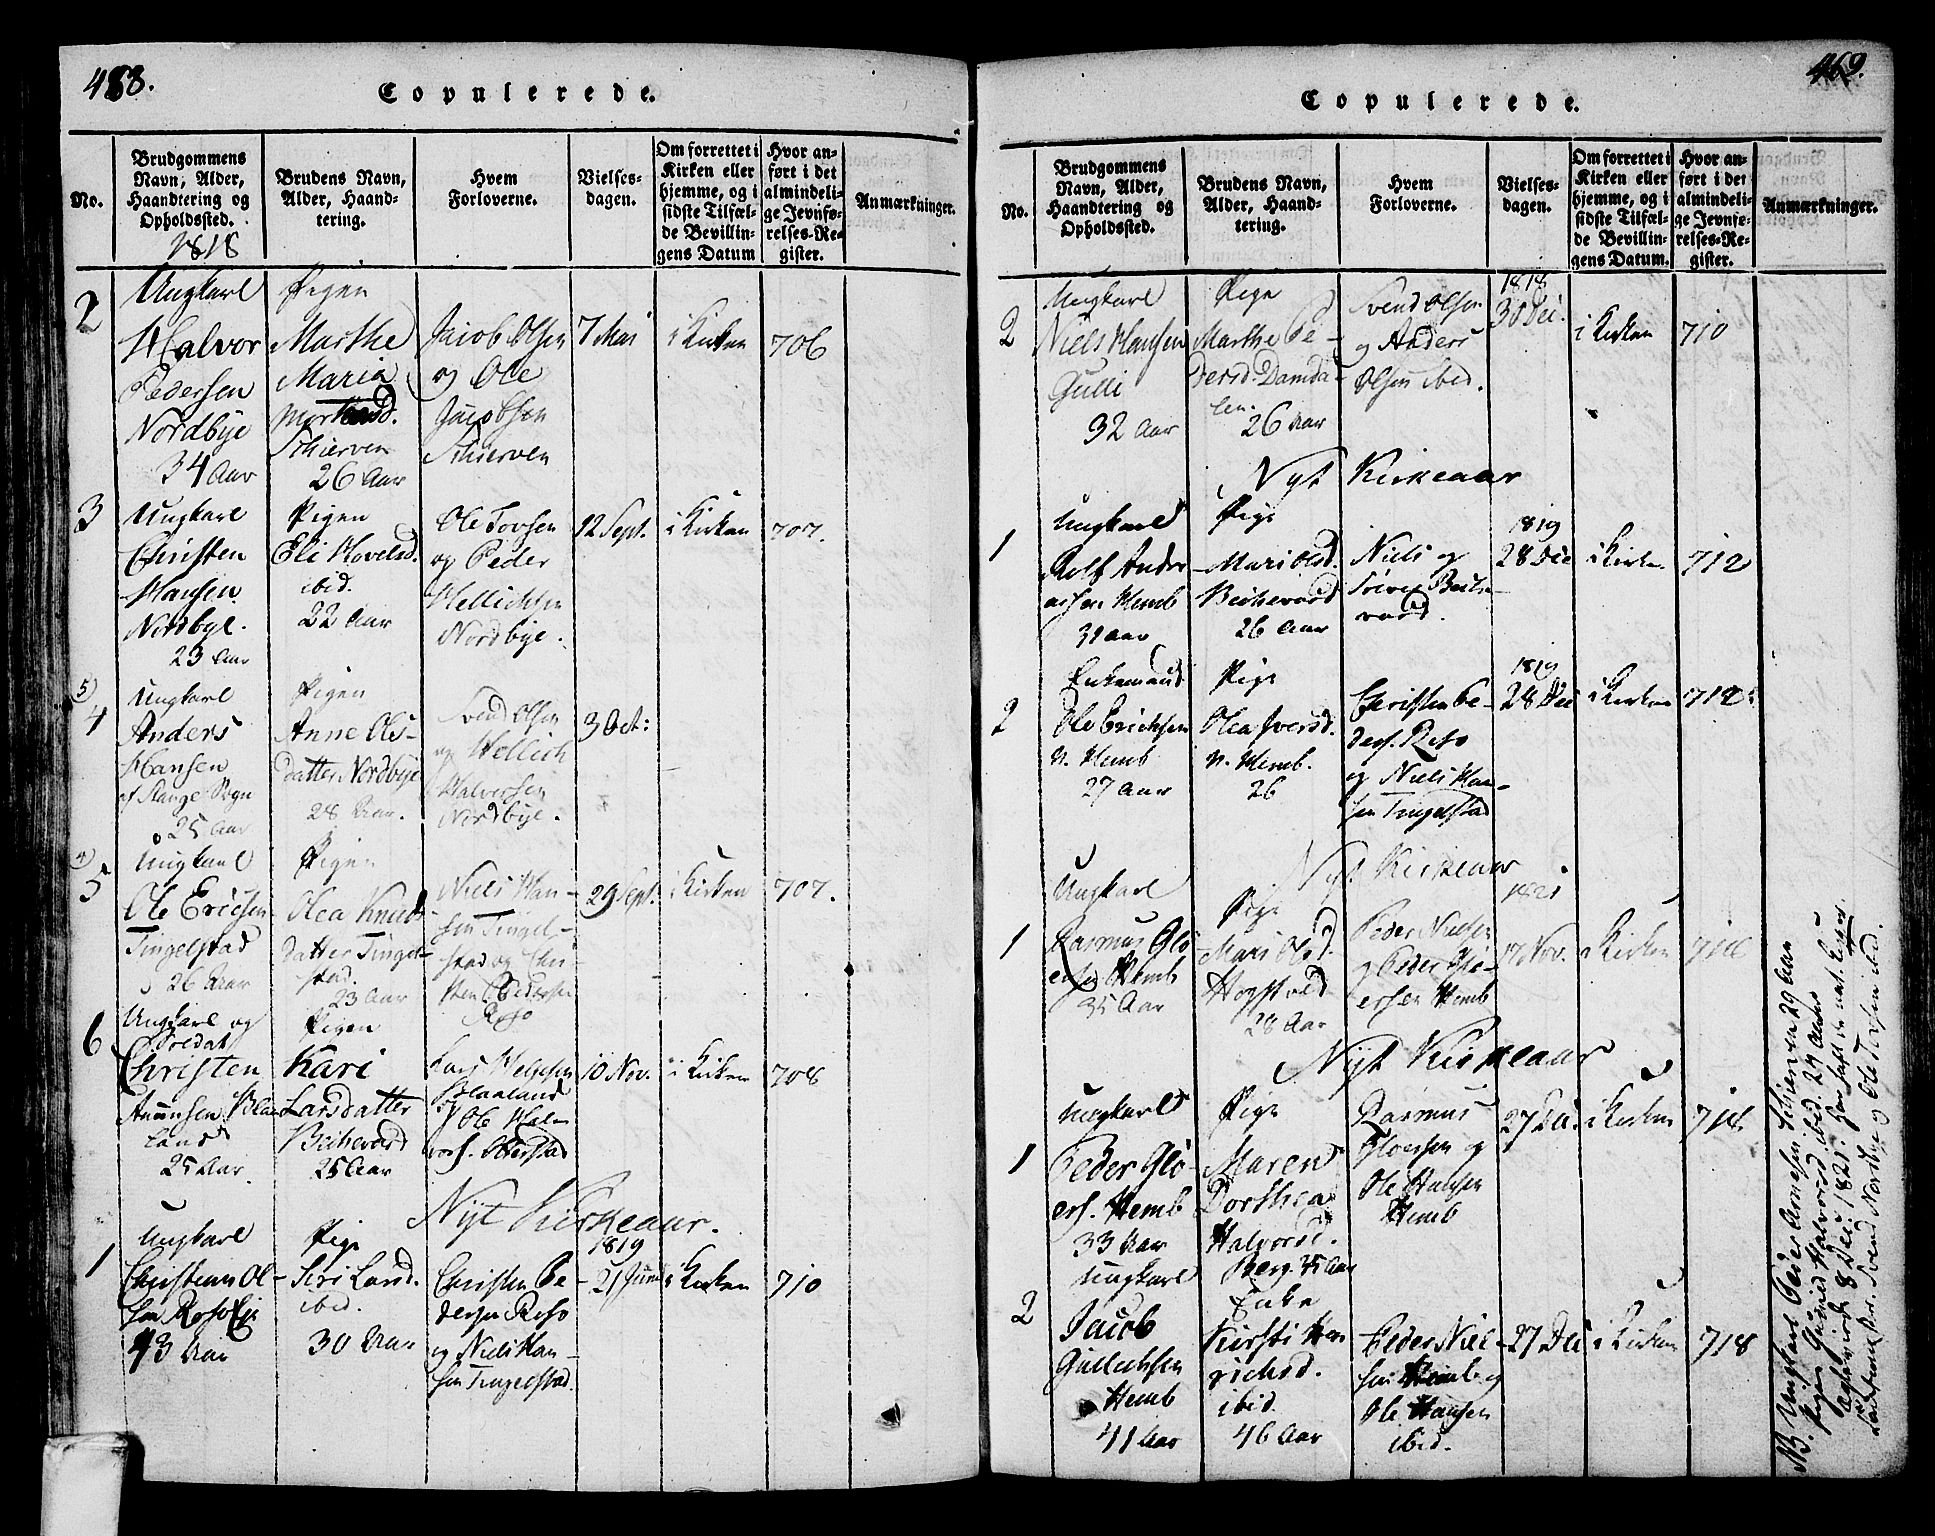 488.
Copulerede.
No.
Brudgommens
Navn, Alder,
Haandtering og
Opholdssted.
1818
Brudens Navn,
Alder, Haand-
tering.
Hvem
Forloverne.
Vielses-
dagen.
Om forrettet i
Kirken eller
hjemme, og i
sidste Tilfæl-
de Bevillin-
gens Datum
Hvor an-
ført i det
almindeli-
ge Jevnfø-
relses-Re-
gister.
Anmærkninger.
2
Ungkarl
Halvor
Pedersen
Nordbye
34 Aar
Pigen
Marthe
Maria
Schierven
26 Aar
Jacob Olsen
og Ole
Jacobsen
Schierven
7 Mai
i Kirken
706
3
Ungkarl
Christen
Hansen
Nordbye.
23 Aar
Pigen
Eli Hovelsd.
ibid.
22 Aar
Ole Tovsen
og Peder
Hellichsen
Nordbye.
12 Sept.
i Kirken
707.
5)
4
Ungkarl
Anders
Hansen
af Stange Sogn
25 Aar
Pigen
Anne Ols-
datter Nordbye
28 Aar.
Svend Olsen
og Hellich
Halvorsen
Nordbye.
3 Oct:
4)
5
Ungkarl
Ole Ericsen
Tingelstad
26 Aar
Pigen
Olea Knuds
datter Tingel-
stad.
23 Aar
Niels Han-
sen Tingel-
stad og Chri-
sten Pedersen
Røso
29 Sept.
i Kirken
707.
6
Ungkarl og
Soldat
Christen
Amunsen Blaa
land
25 Aar
Pigen
Kari
Larsdatter
Beihevard
25 Aar
Lars Helgesen
Blaaland
og Ole Hal-
vors.
10 Nov.
i Kirken
708
Nyt Kirkeaar.
1
Ungkarl
Christian Ol-
sen Røso Eje
43 Aar
Pige
Siri Land.
ibid.
30 Aar
Christen Pe-
dersen Røso
og Niels Han-
sen Tingelstad.
1819
21 Juni
i Kirken
710
469.
Copulerede.
No.
Brudgommens
Navn, Alder,
Haandtering og
Opholdssted.
Brudens Navn,
Alder, Haand-
tering.
Hvem
Forloverne.
Vielses-
dagen.
Om forrettet i
Kirken eller
hjemme, og i
sidste Tilfæl-
de Bevillin-
gens Datum.
Hvor an-
ført i det
almindeli-
ge Jevnfø-
relses-Re-
gister.
Anmærkninger.
2
Ungkarl
Niels Hansen
Gulli
32 Aar
Pige
Marthe Pe-
dersd. Damda-
len.
26 Aar
Svend Olsen
og Anders
Olsen ibid.
1818
30 Dec.
i Kirken
710
Nyt Kirkeaar
1
Ungkarl
Rolf Andre
asen Hemb
31 Aar
Pige
Mari Olsd.
Beihevard
26 Aar
Niels og
Beihe-
vard.
1819
28 Dec
i Kirken
712
2
Enkemand
Ole Erichsen
n. Hemb
27 Aar
Pige
Olea Iversd.
n. Hemb.
26
Christen Pe-
ders. Røso
og Niels Han-
sen Tingelstad
1819
28 Dec
i Kirken
712
Nyt Kirkeaar
1
Ungkarl
Rasmus Glø
ersen Hemb
35 Aar
Pige
Mari Olsd.
Hogstved
28 Aar
Peder Nielsen
og Peder Glø-
ersen Hemb
1821
17 Nov.
i Kirken
Nyt Kirkeaar
1
Ungkarl
Peder Glø-
ers. Hemb
33 Aar
Pige
Maren
Dorthea
Halvorsd.
Berg. Aar
Rasmus
Gloersen og
Ole Hansen
Hemb
27 Dec.
i Kirken
718
2
Ungkarl
Jacob
Gulluchsen
Hemb
41 Aar
Enke
Kirsti Hen
richsd.
ibid.
46 Aar
Peder Niel-
sen Hemb og
Ole Hansen
ibid.
27 Dec
i Kirken
718
NB. Ungkarl Peder Arnesen Schierven 29 Aar
Pigen Gunild Halvorsd. ibid. 24 Aar
Ægteviede 8 Dec 1821.
Svend Nordbye og Ole Torsen ibid.